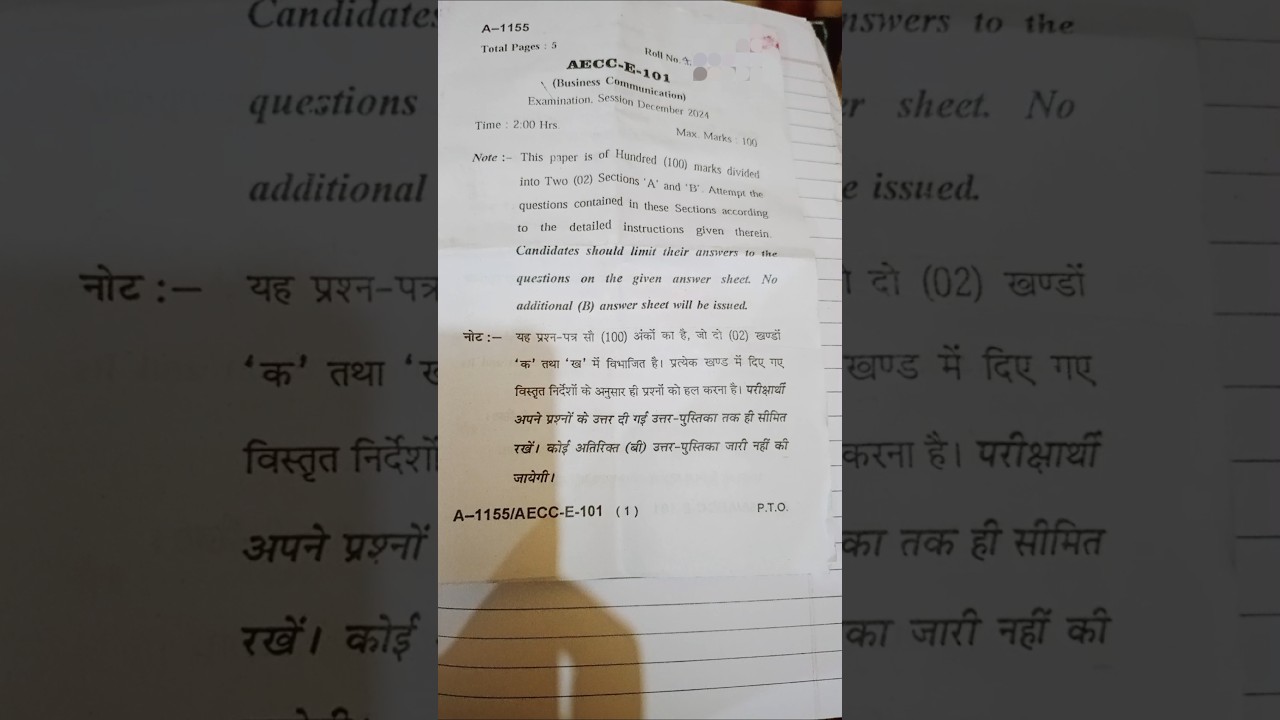 A–1155
Total Pages : 5
Roll No.
AECC-E-101
(Business Communication)
Examination, Session December 2024
Time : 2:00 Hrs.
Max. Marks : 100
Note :– This paper is of Hundred (100) marks divided
into Two (02) Sections 'A' and 'B'. Attempt the
questions contained in these Sections according
to the detailed instructions given therein.
Candidates should limit their answers to the
questions on the given answer sheet. No
additional (B) answer sheet will be issued.
नोट :– यह प्रश्न-पत्र सौ (100) अंकों का है, जो दो (02) खण्डों
'क' तथा 'ख' में विभाजित है। प्रत्येक खण्ड में दिए गए
विस्तृत निर्देशों के अनुसार ही प्रश्नों को हल करना है। परीक्षार्थी
अपने प्रश्नों के उत्तर दी गई उत्तर-पुस्तिका तक ही सीमित
रखें। कोई अतिरिक्त (बी) उत्तर-पुस्तिका जारी नहीं की
जायेगी।
A–1155/AECC-E-101 (1) P.T.O.